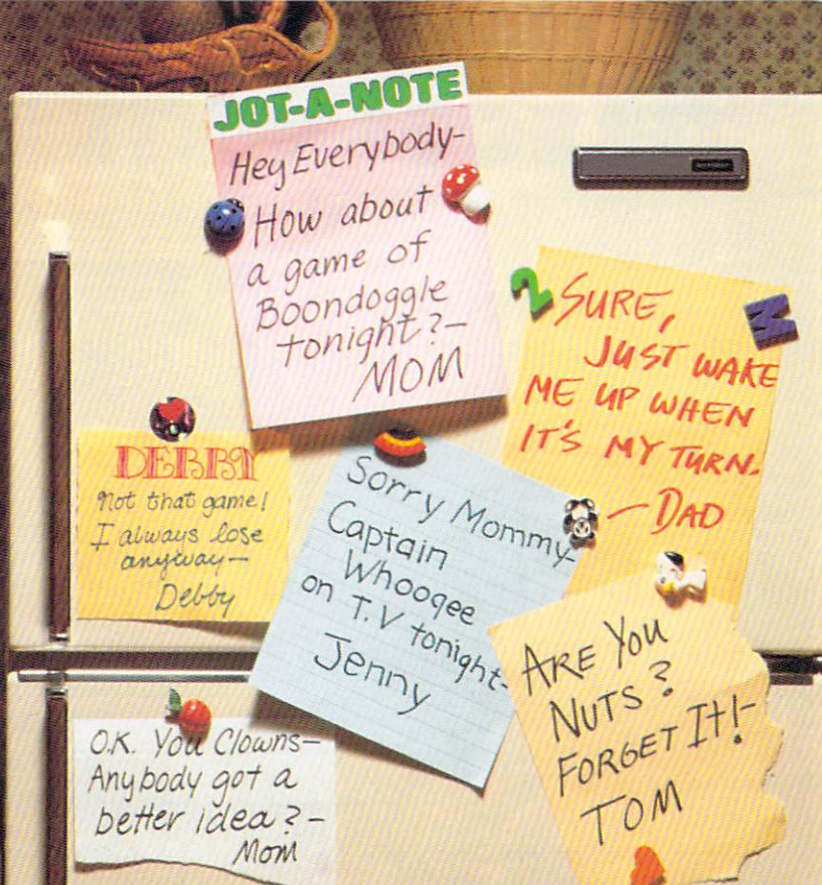 JOT-A-NOTE
Hey Everybody-
How about
a game of
Boondoggle
tonight?-
MOM
SURE,
JUST WAKE
ME UP WHEN
IT'S MY TURN.
—DAD
DEBBY
Not that game!
I always lose
anyway—
Debby
Sorry Mommy-
Captain
Whoogee
on T.V tonight-
Jenny
ARE YOU
NUTS?
FORGET IT!-
TOM
O.K. You Clowns—
Anybody got a
better idea?-
Mom
2
M